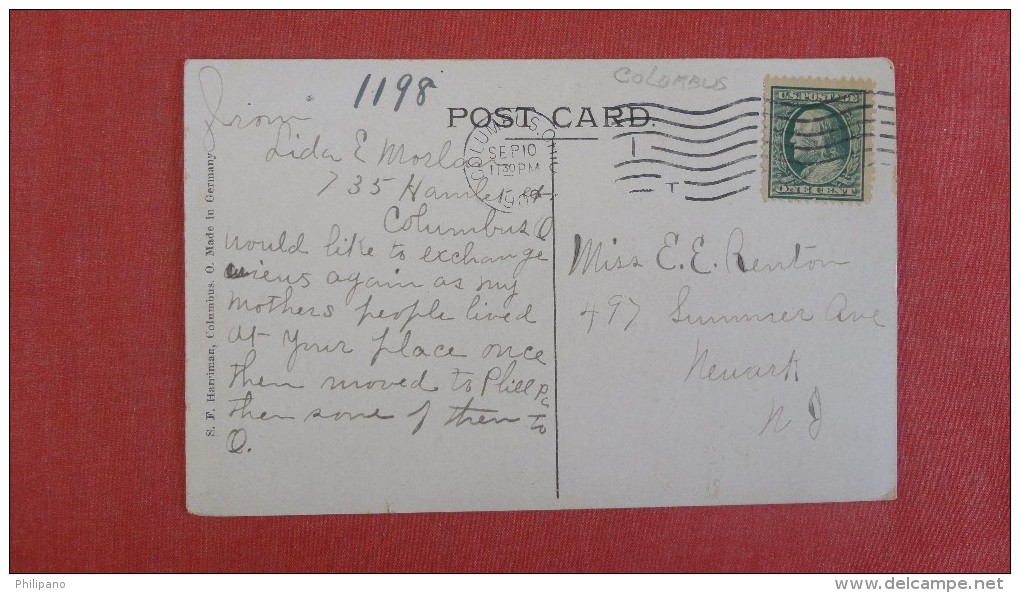 COLUMBUS
1198
POST CARD.
U.S. POSTAGE
ONE CENT
COLUMBUS, OHIO
SEP 10
11 30 PM
from
Lida E
735 Hamlet St
Columbus O
would like to exchange
views again as my
mothers people lived
at your place once
then moved to Phil Pa
then some of them to
O.
Miss E. E. Renton
497 Summer Ave
Newark
N J
S. F. Harriman, Columbus. O. Made in Germany
Philipano
delcampe.net